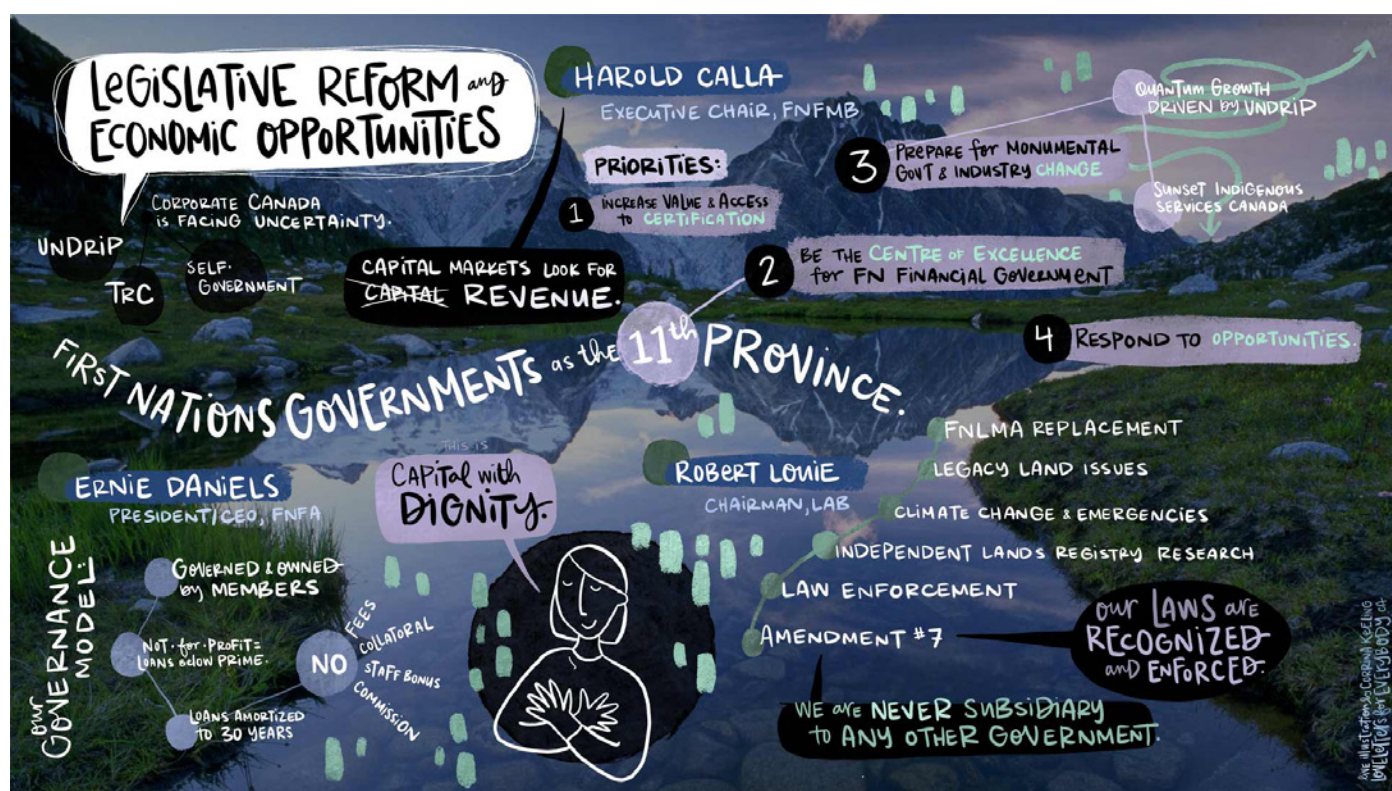 LEGISLATIVE REFORM and
ECONOMIC OPPORTUNITIES
CORPORATE CANADA
is FACING UNCERTAINTY.
UNDRIP
TRC
SELF-
GOVERNMENT
HAROLD CALLA
EXECUTIVE CHAIR, FNFMB
CAPITAL MARKETS LOOK FOR
CAPITAL REVENUE.
PRIORITIES:
1 INCREASE VALUE & ACCESS
to CERTIFICATION
2 BE THE CENTRE of EXCELLENCE
for FN FINANCIAL GOVERNMENT
3 PREPARE for MONUMENTAL
GOVT & INDUSTRY CHANGE
QUANTUM GROWTH
DRIVEN by UNDRIP
SUNSET INDIGENOUS
SERVICES CANADA
4 RESPOND TO OPPORTUNITIES.
FIRST NATIONS GOVERNMENTS as the 11th PROVINCE.
ERNIE DANIELS
PRESIDENT/CEO, FNFA
THIS IS
CAPITAL with
DIGNITY.
our
GOVERNANCE
MODEL:
GOVERNED & OWNED
by MEMBERS
NOT·for·PROFIT =
LOANS BELOW PRIME.
LOANS AMORTIZED
TO 30 YEARS
NO
FEES
COLLATORAL
STAFF BONUS
COMMISSION
ROBERT LOUIE
CHAIRMAN, LAB
FNLMA REPLACEMENT
LEGACY LAND ISSUES
CLIMATE CHANGE & EMERGENCIES
INDEPENDENT LANDS REGISTRY RESEARCH
LAW ENFORCEMENT
AMENDMENT #7
our LAWS are
RECOGNIZED
and ENFORCED.
WE are NEVER SUBSIDIARY
to ANY OTHER GOVERNMENT.
LIVE illustration by CORRINA KEELING
LOVELETTERS for EVERYBODY.CA